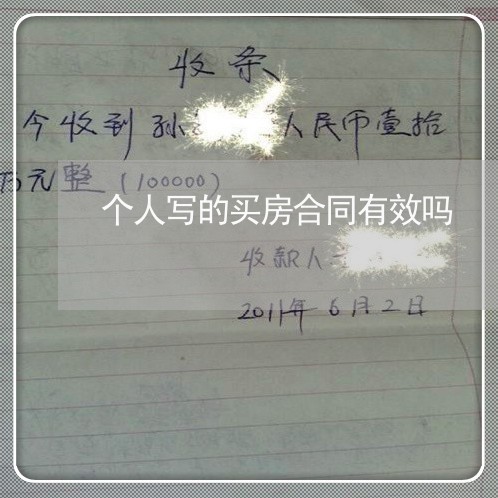 收条
今收到孙人民币壹拾
万元整(100000)
个人写的买房合同有效吗
收款人
2011年6月2日